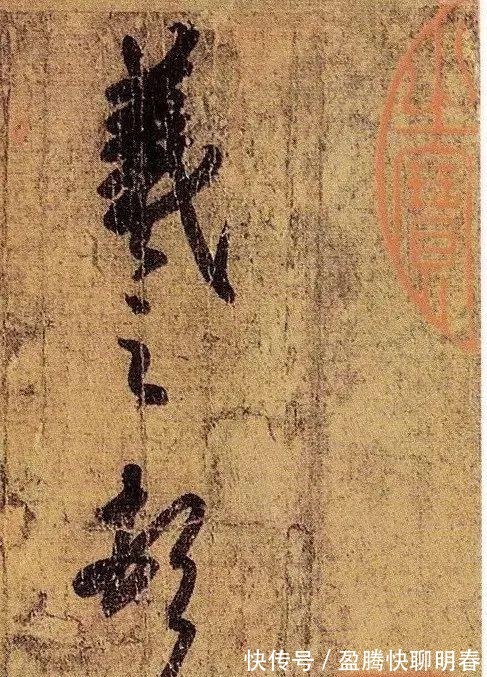 羲之頓
快传号/盈腾快聊明春